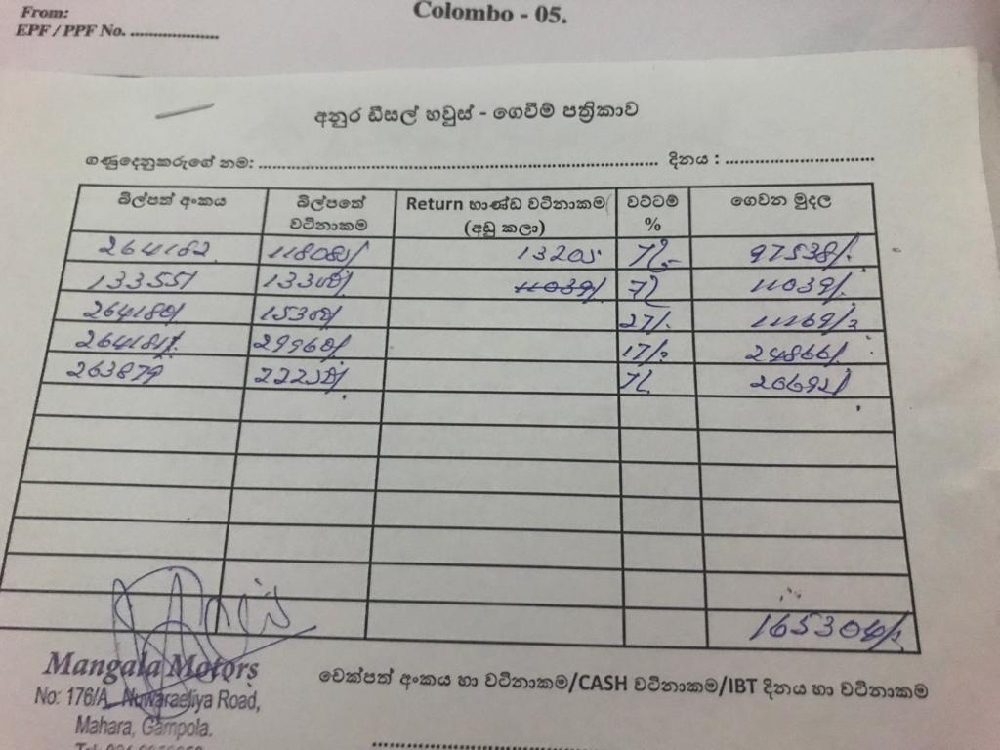 From:
EPF / PPF No. ....................
Colombo - 05.
අනුර ඩීසල් හවුස් - ගෙවීම් පත්‍රිකාව
ගණුදෙනුකරුගේ නම: ........................................ දිනය : ..............................
බිල්පත් අංකය බිල්පතේ වටිනාකම Return භාණ්ඩ වටිනාකම (අඩු කලා) වට්ටම් % ගෙවන මුදල
264182 118080/ 13200 7% 97538/-
13300/ 11039/ 7% 11039/-
264180/ 15300/ 27% 11169/-
264181/. 29960/ 17% 24866/-
263879 22250/ 7% 20692/
165304/-
Mangala Motors
No: 176/A, Nuwaraeliya Road,
Mahara, Gampola.
චෙක්පත් අංකය හා වටිනාකම/CASH වටිනාකම/IBT දිනය හා වටිනාකම